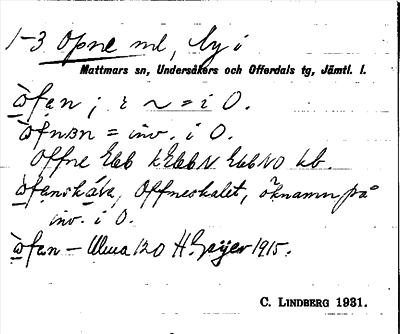 1-3 Opne ml, by i
Mattmars sn, Undersåkers och Offerdals tg, Jämtl. l.
òfan ; i ~ = i O.
= inv. i O.
Offne EBB KEBBN EBBNO kb.
Offneskalet, öknamn på
inv. i O.
òfan — Ulma 120 H. Geijer 1915.
C. LINDBERG 1931.